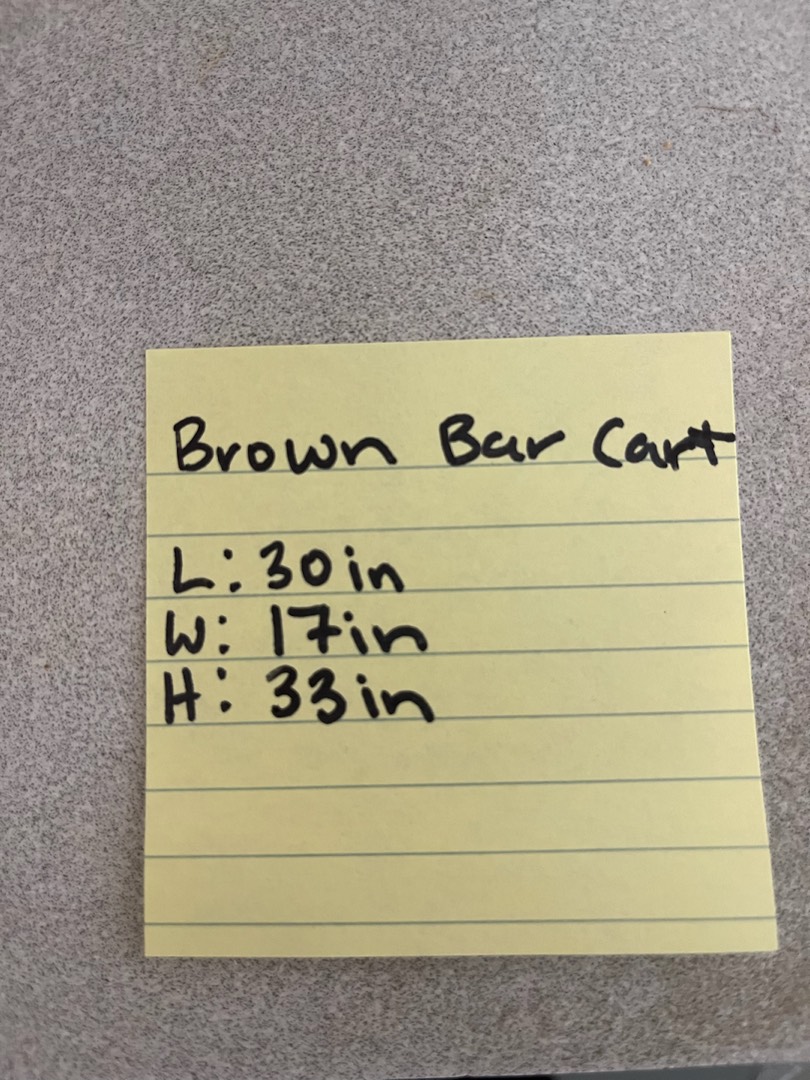 Brown Bar Cart
L: 30in
W: 17in
H: 33in